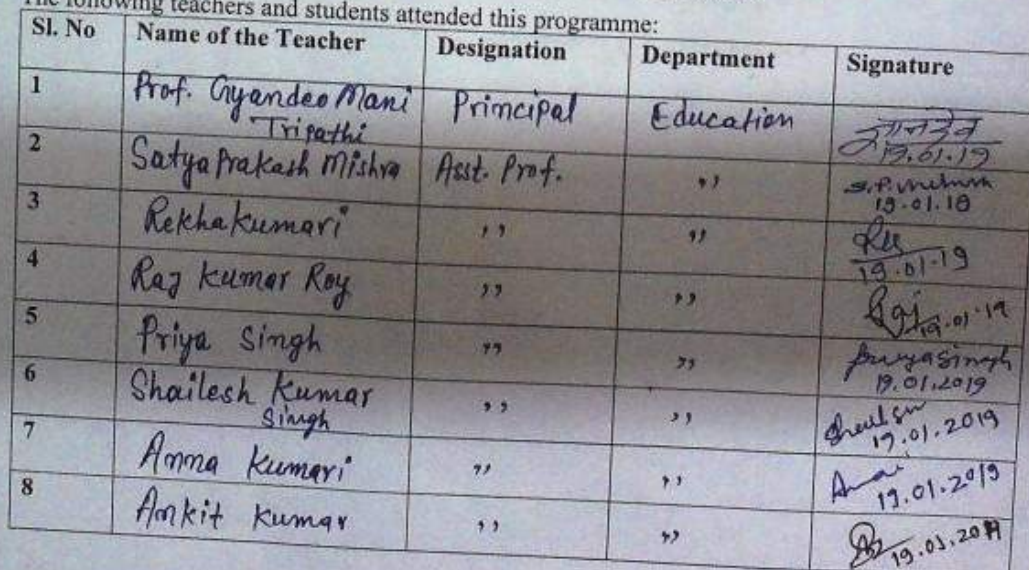 The following teachers and students attended this programme:
Sl. No Name of the Teacher Designation Department Signature
1 Prof. Gyandeo Mani Tripathi Principal Education ज्ञानदेव 19.01.19
2 Satya Prakash Mishra Asst. Prof. ,, 19.01.19
3 Rekha Kumari ,, ,, 19.01.19
4 Raj Kumar Roy ,, ,, Raj 19.01.19
5 Priya Singh ,, ,, Priya Singh 19.01.2019
6 Shailesh Kumar Singh ,, ,, 19.01.2019
7 Anna Kumari ,, ,, 19.01.2019
8 Ankit Kumar ,, ,, 19.01.2019